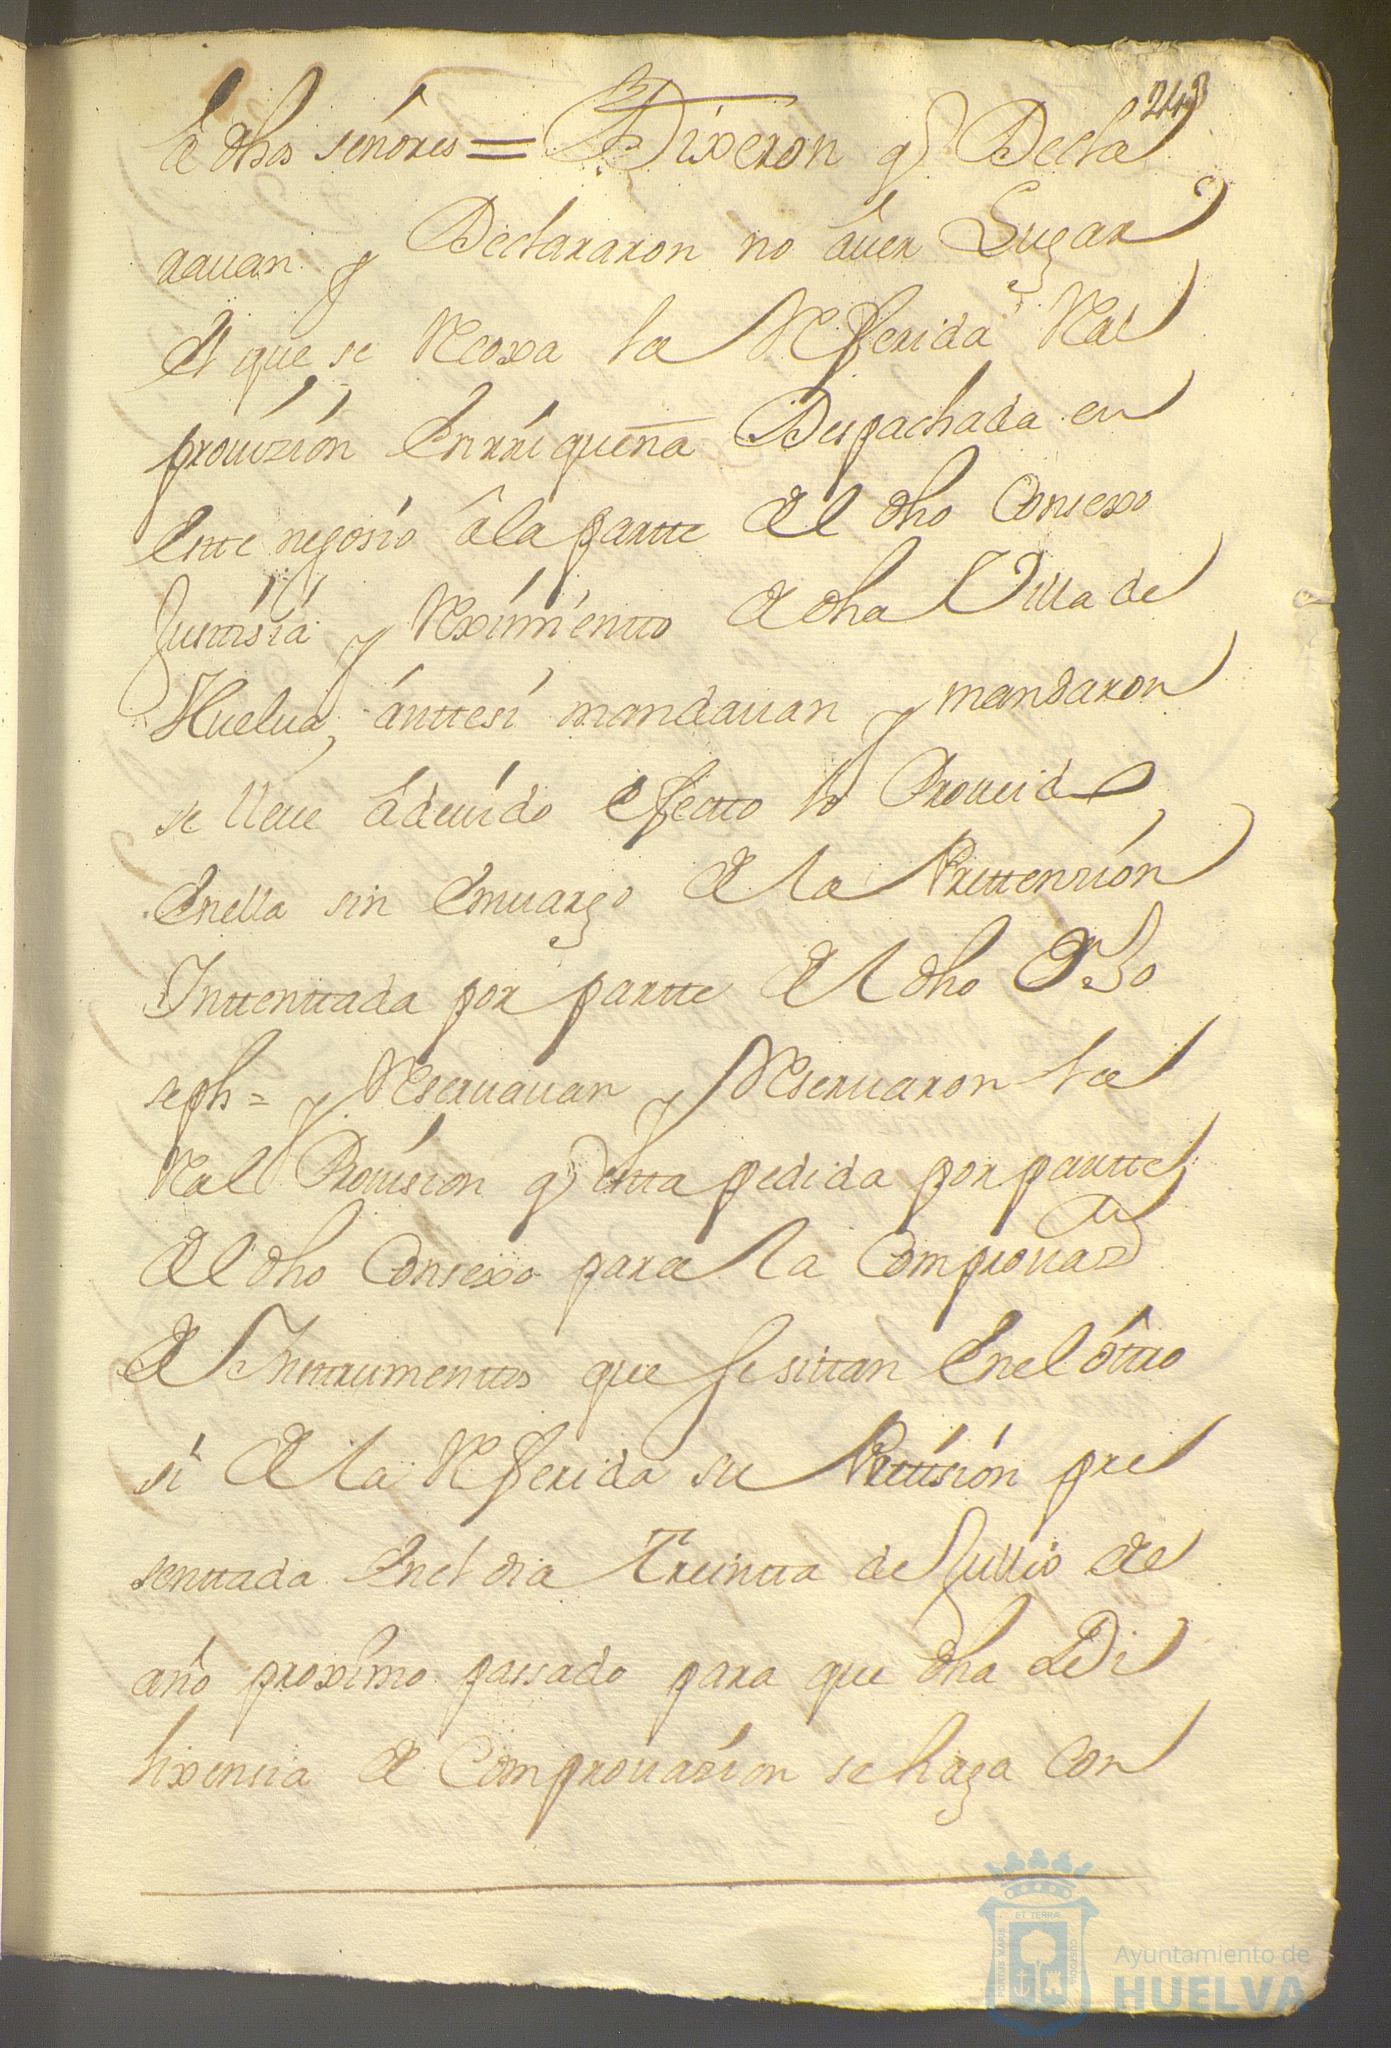 243
a dhos señores = Dixeron q Decla
rauan y Declararon no auer Lugar
el que se Recoxa la Referida Ral
prouizión Enrriqueña Despachada en
Este negosio âla partte del dho Consexo
Justisia y Reximientto de dha Villa de
Huelua, ánttesi mandauan y mandaron
se lleue ádeuido efectto lo Proueido
Enella sin Emuargo de la Prettenzión
Inttenttada por partte del dho D.n Jo
seph = y Reseruauan y Reseruaron la
Ral Prouision q estta pedida por partte
del dho Consexo para la Comprouaz.on
de Insttrumenttos que se sittan Enel ôttro
si de la Referida su Pettisión pre
senttada Enel dia Treintta de Jullio de
año proximo passado para que dha Di
lixensia de Comprouazion se haga Con
PORTUS MARIS ET TERRAE CUSTODIA
Ayuntamiento de
HUELVA